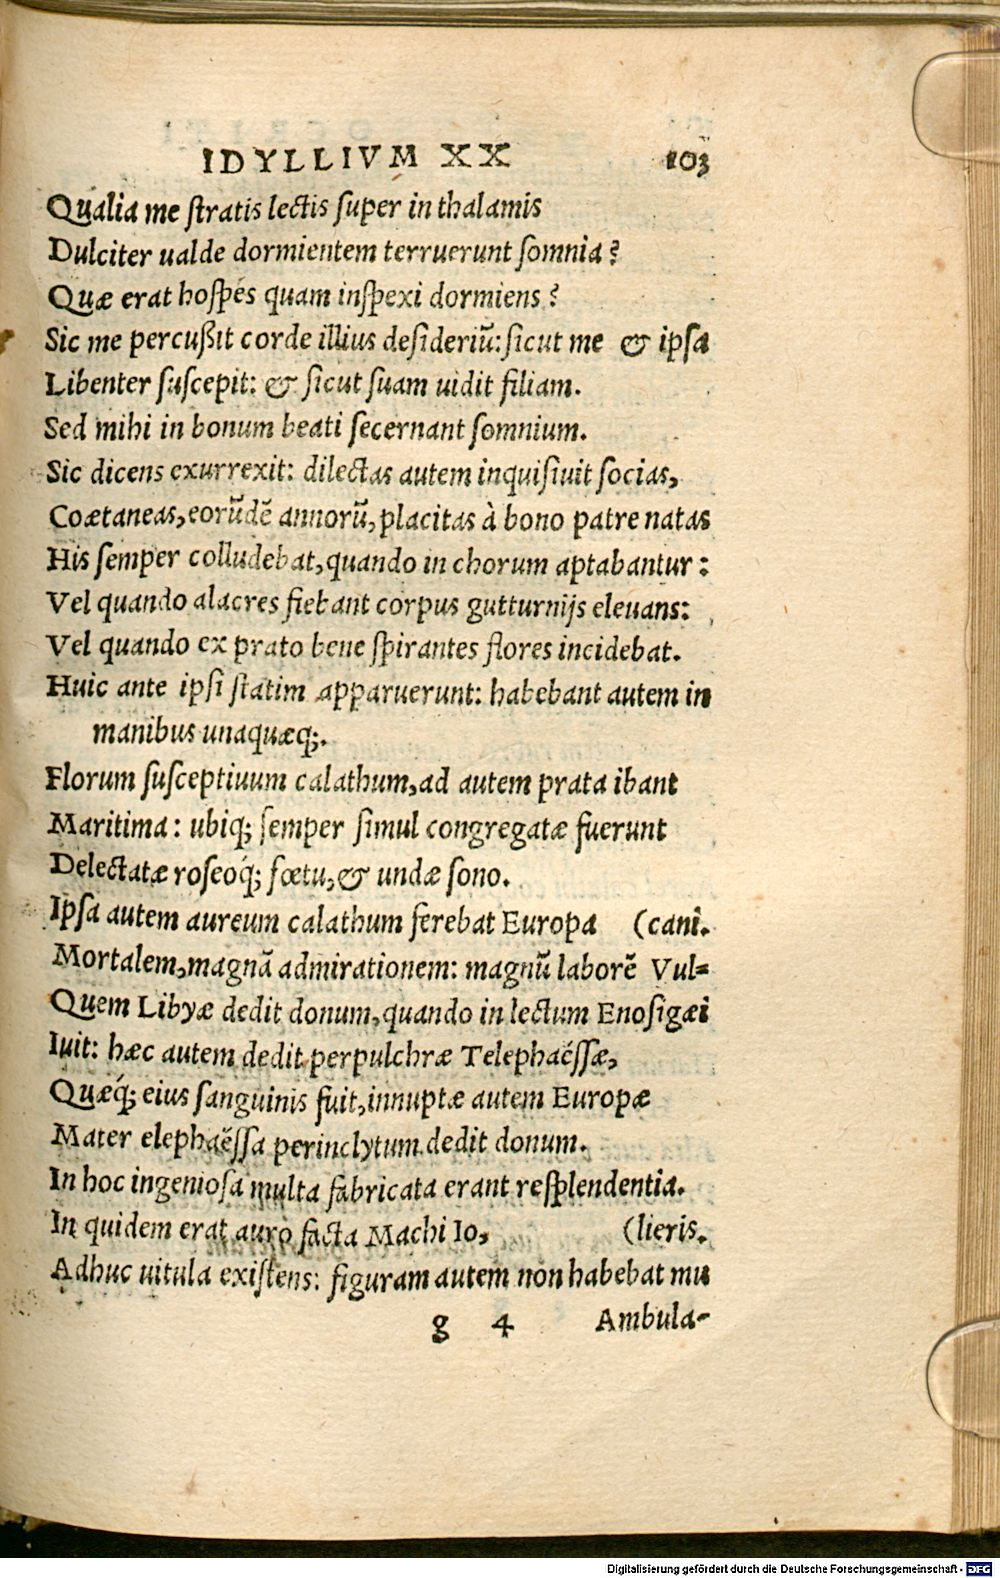 IDYLLIVM XX 103
Qualia me ſtratis lectis ſuper in thalamis
Dulciter ualde dormientem terruerunt ſomnia?
Quæ erat hoſpes quam inſpexi dormiens?
Sic me percußit corde illius deſideriũ: ſicut me & ipſa
Libenter ſuſcepit: & ſicut ſuam uidit filiam.
Sed mihi in bonum beati ſecernant ſomnium.
Sic dicens exurrexit: dilectas autem inquiſiuit ſocias,
Coætaneas, eorũdẽ annorũ, placitas à bono patre natas
His ſemper colludebat, quando in chorum aptabantur:
Vel quando alacres fiebant corpus gutturnijs eleuans:
Vel quando ex prato bene ſpirantes flores incidebat.
Huic ante ipſi ſtatim apparuerunt: habebant autem in
manibus unaquæq;.
Florum ſuſceptiuum calathum, ad autem prata ibant
Maritima: ubiq; ſemper ſimul congregatæ fuerunt
Delectatæ roſeoq́; fœtu, & undæ ſono.
Ipſa autem aureum calathum ferebat Europa (cani.
Mortalem, magnã admirationem: magnũ laborẽ Vul=
Quem Libyæ dedit donum, quando in lectum Enoſigæi
Iuit: hæc autem dedit perpulchræ Telephaëſſæ,
Quæq́; eius ſanguinis fuit, innuptæ autem Europæ
Mater elephaëſſa perinclytum dedit donum.
In hoc ingenioſa multa fabricata erant reſplendentia.
In quidem erat auro facta Machi Io, (lieris.
Adhuc uitula exiſtens: figuram autem non habebat mu
g 4 Ambula-
Digitalisierung gefördert durch die Deutsche Forschungsgemeinschaft - DFG